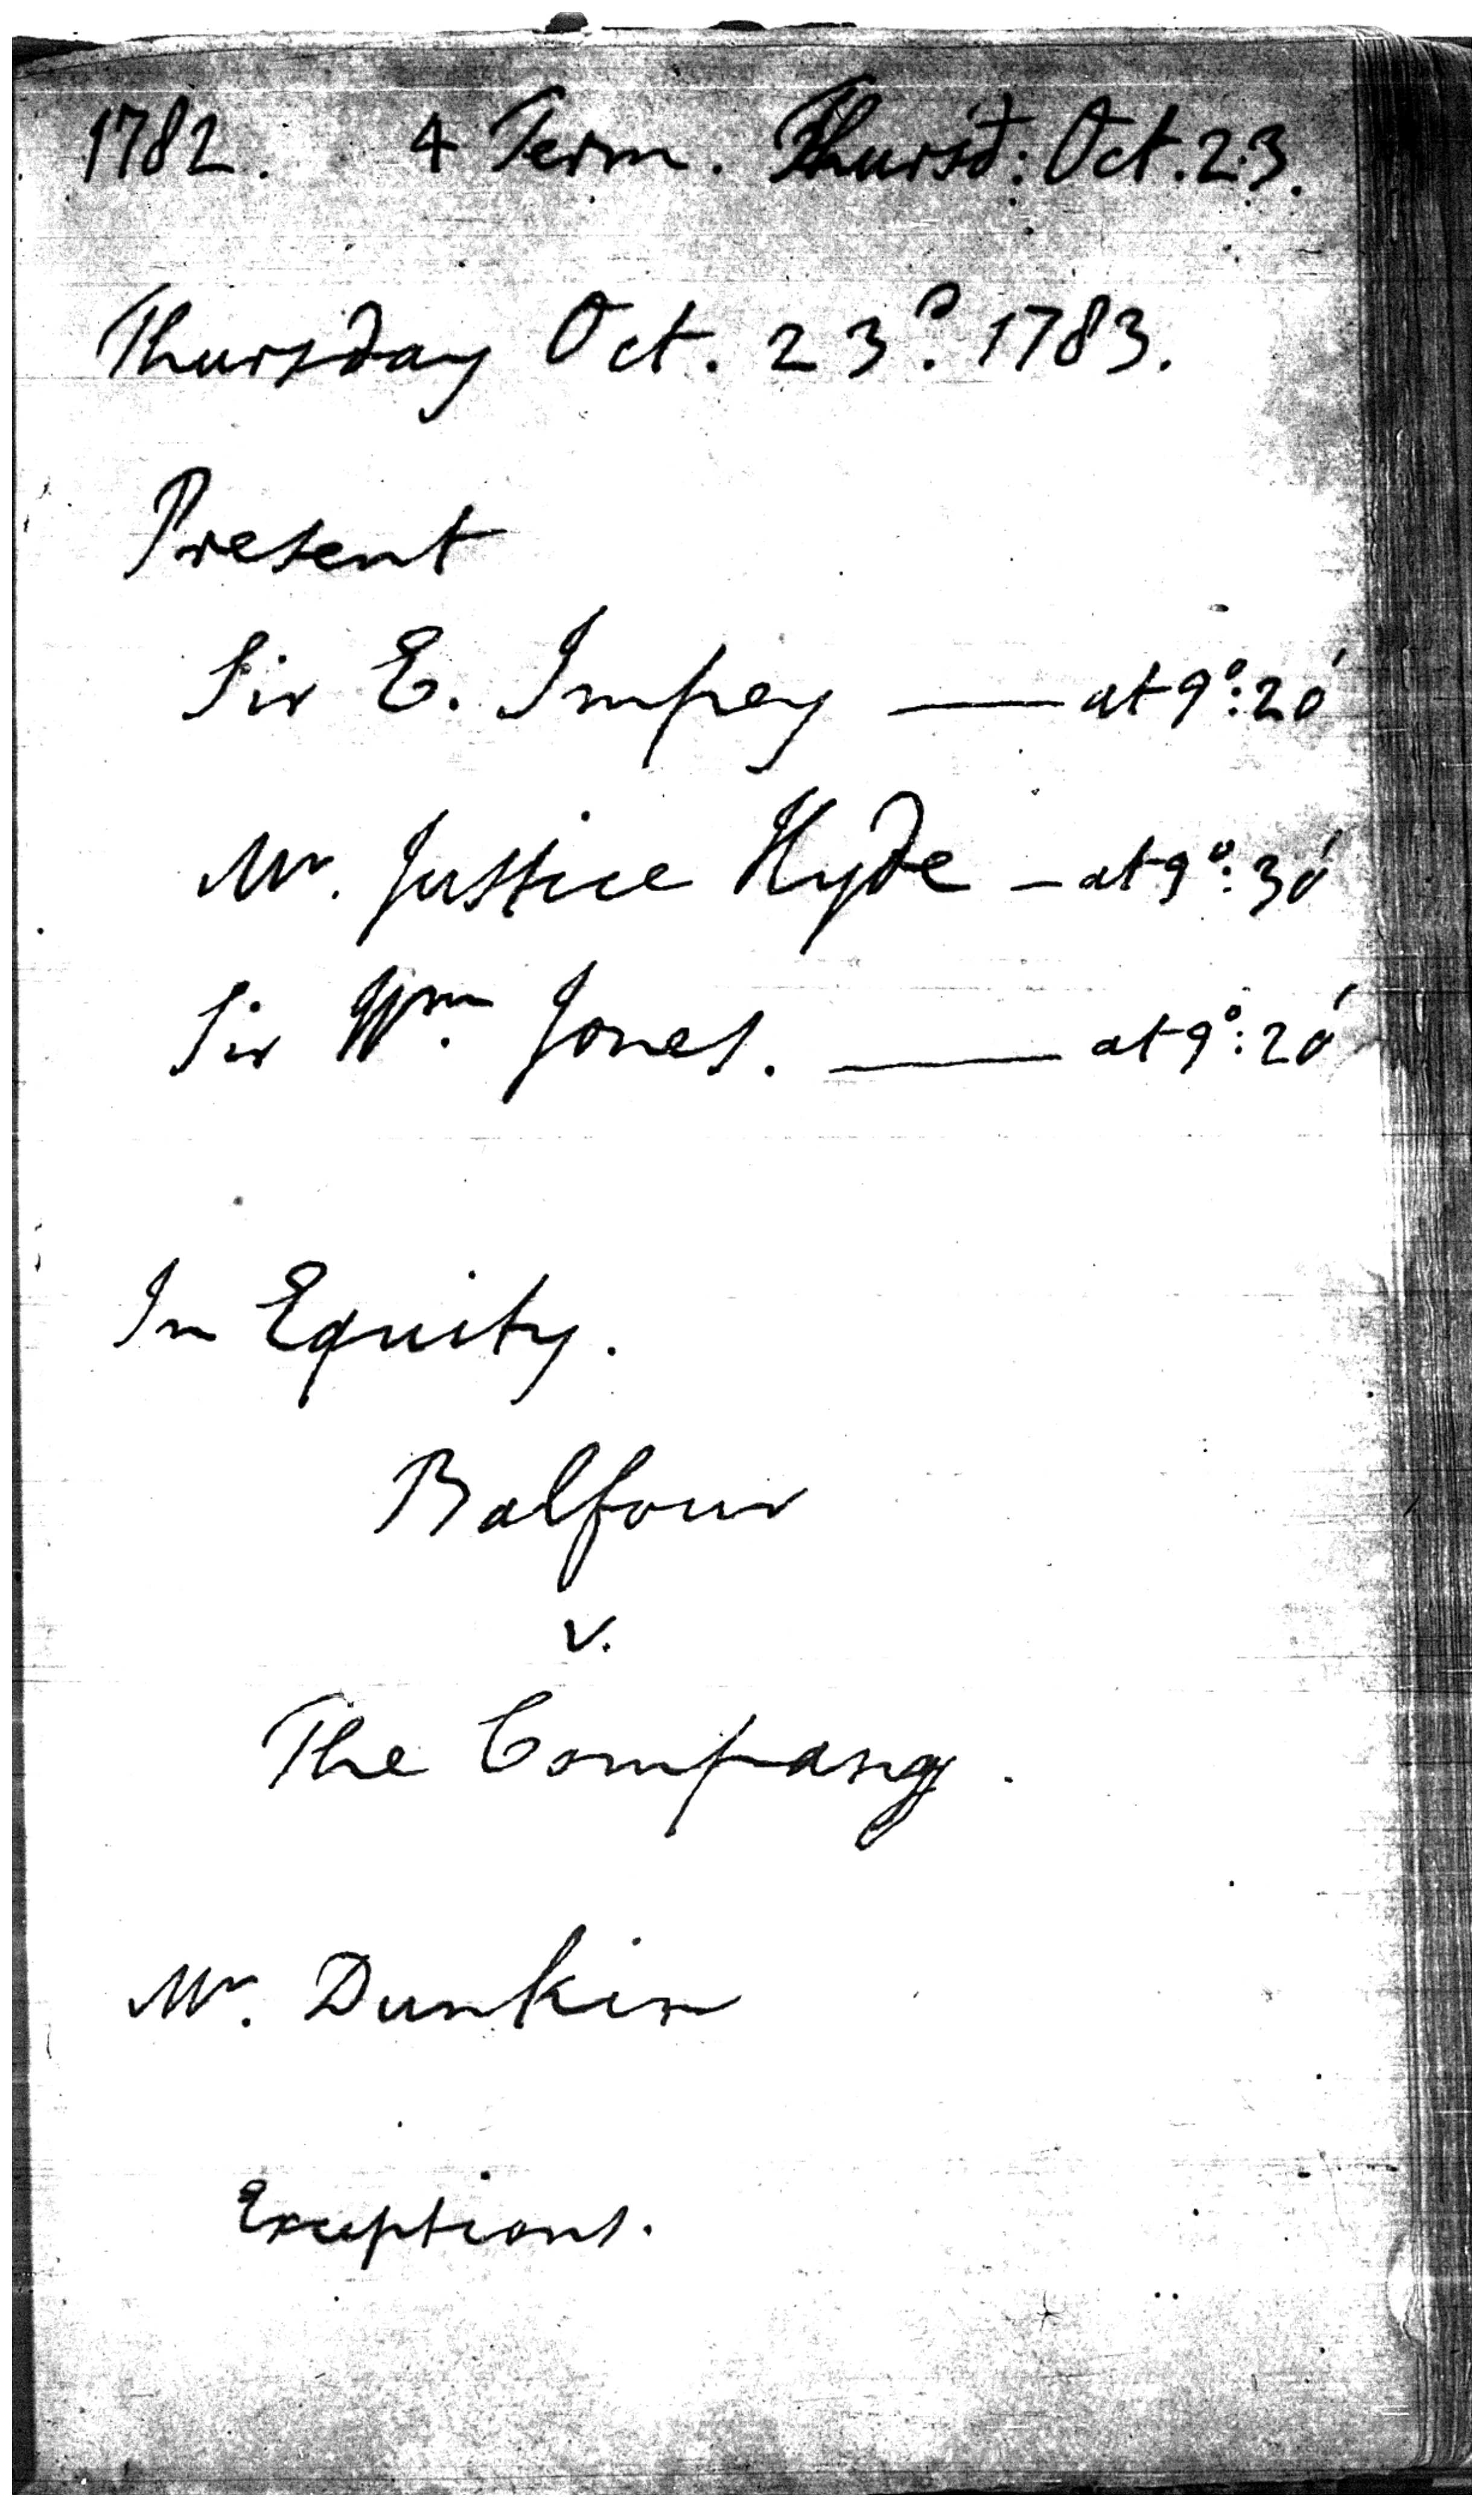 1782. 4 Term. Thursd: Oct. 23.
Thursday Oct. 23d. 1783.
Present
Sir E. Impey — at 9°: 20'
Mr. Justice Hyde — at 9°: 30'
Sir Wm. Jones. — at 9°: 20'
In Equity.
Balfour
v.
The Company.
Mr. Dunkin
Exceptions.